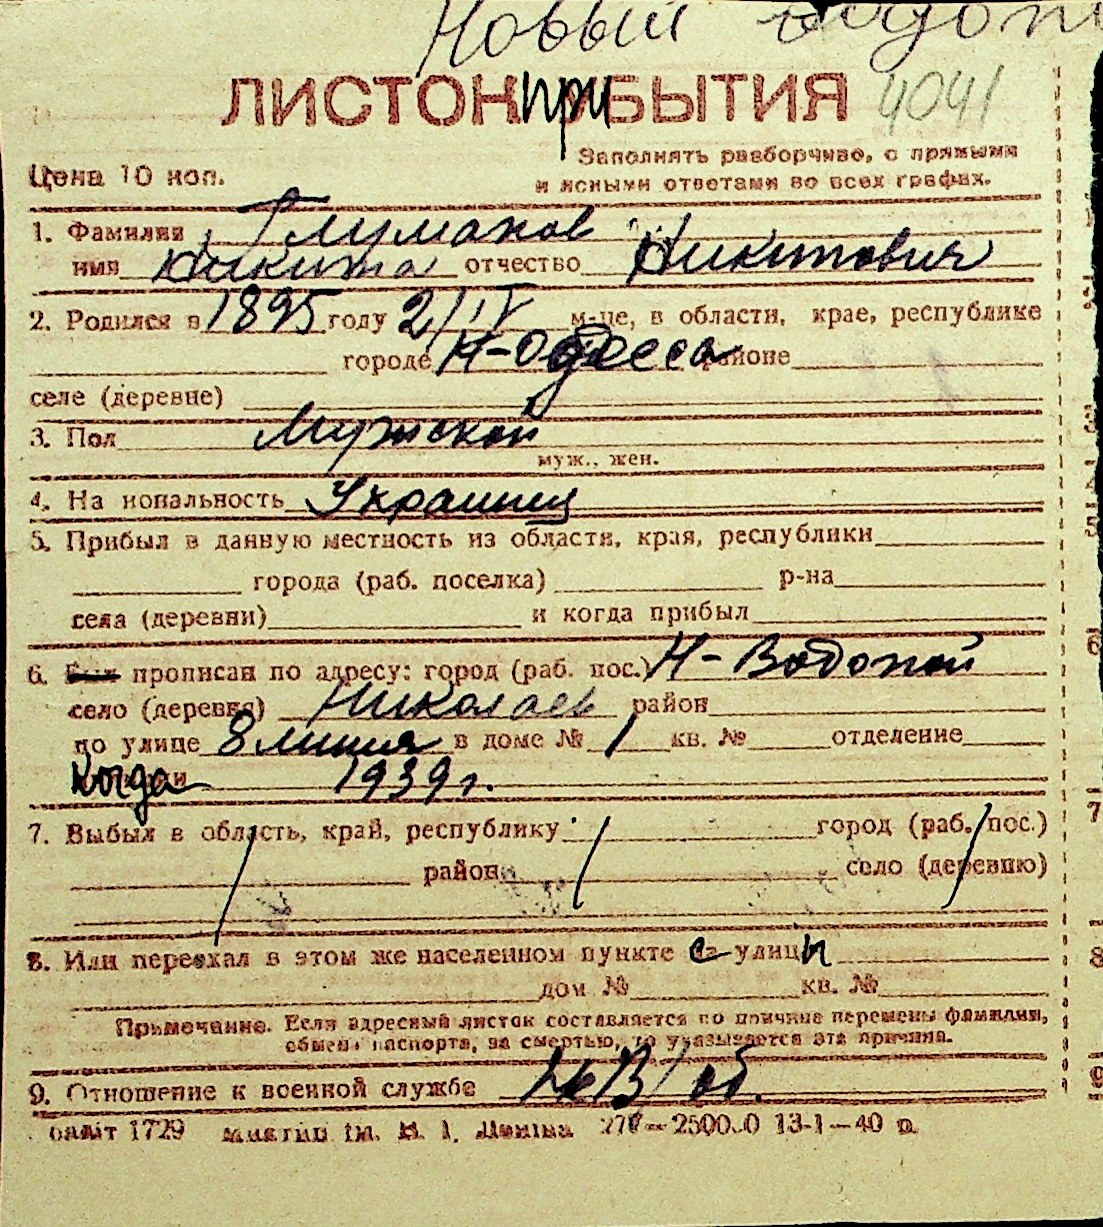 Новый Водопой
ЛИСТОК ПРИБЫТИЯ 4041
Заполнять разборчиво, с прямыми
Цена 10 коп. и ясными ответами во всех графах.
1. Фамилия Глуманов
имя Никита отчество Никитович
2. Родился в 1895 году 2/IV м-це, в области, крае, республике
городе Н-Одесса районе
селе (деревне)
3. Пол Мужской
муж., жен.
4. На иональность Украинец
5. Прибыл в данную местность из области, края, республики
города (раб. поселка) р-на
села (деревни) и когда прибыл
6. прописан по адресу: город (раб. пос.) Н-Водопой
село (деревня) Николаев район
по улице 8 линия в доме № 1 кв. № отделение
Когда 1939 г.
7. Выбыл в область, край, республику город (раб. пос.)
район село (деревню)
8. Или переехал в этом же населенном пункте с улицы
дом № кв. №
Примечание. Если адресный листок составляется по причине перемены фамилии,
обмена паспорта, за смертью, то указывается эта причина.
9. Отношение к военной службе об.
1729 им. В. І. Леніна 13-1—40 р.